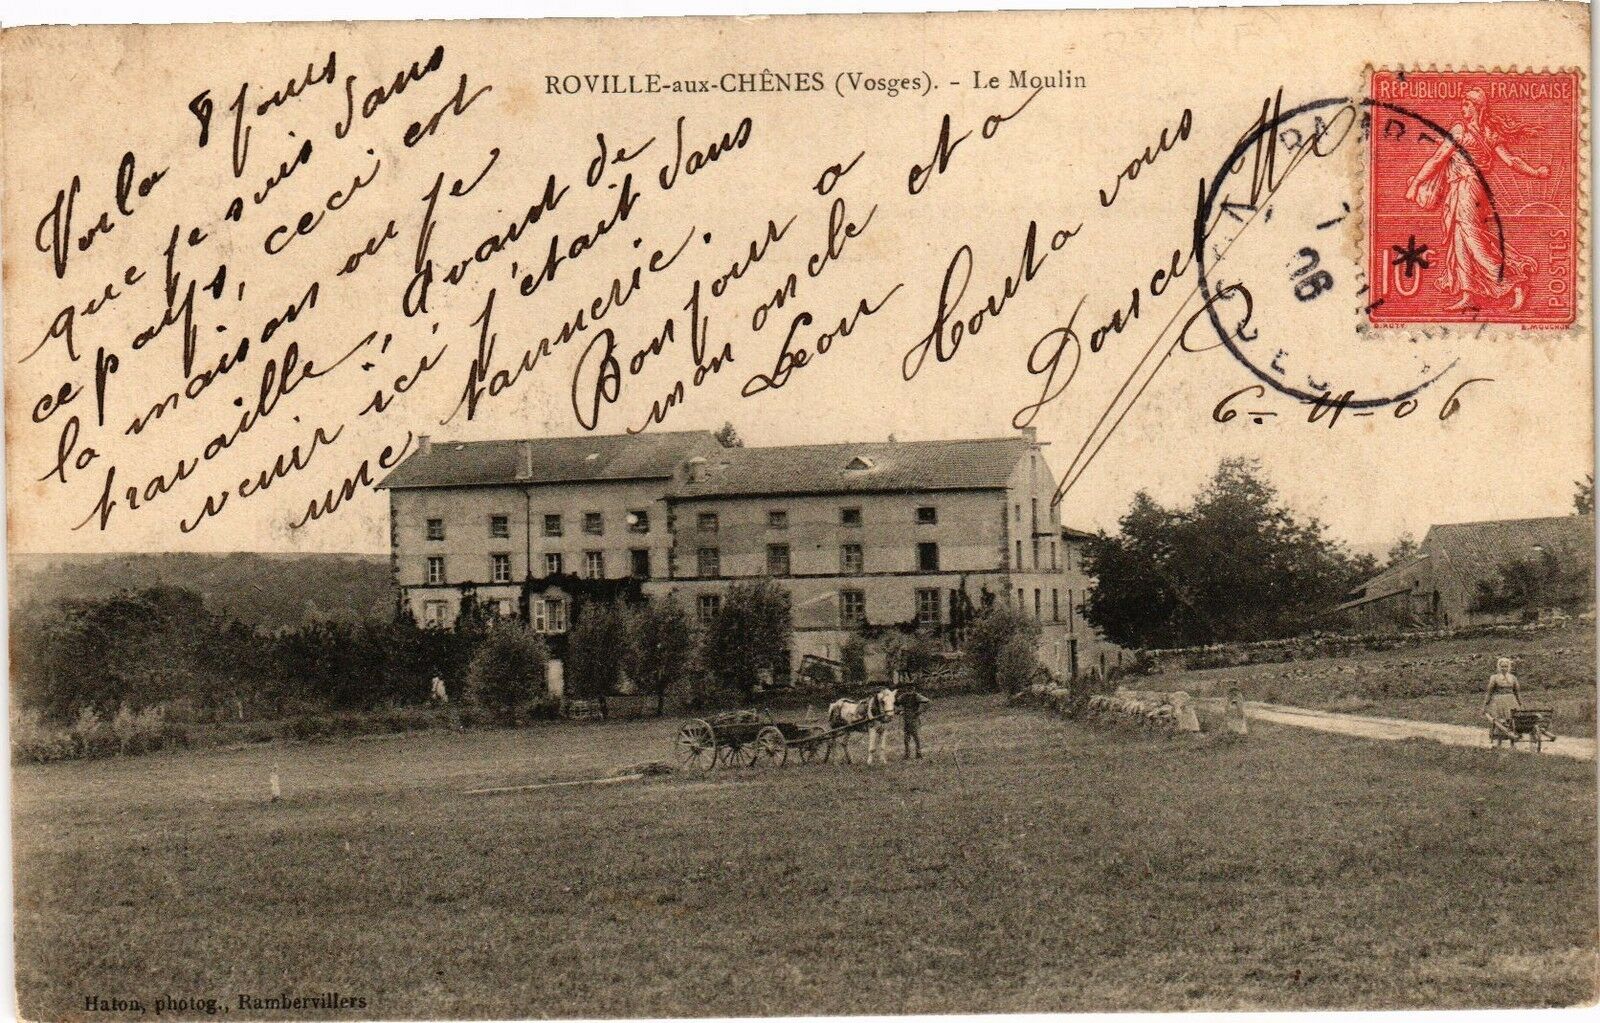 ROVILLE-aux-CHÊNES (Vosges). - Le Moulin
Voila 8 jours
que je suis dans
ce pays, ceci est
la maison ou je
travaille, avant de
venir ici j'était dans
une tannerie.
Bonjour a
mon oncle et a
Leon
tout a vous
6-11-06
RÉPUBLIQUE FRANÇAISE
10
POSTES
O.ROTY
E.MOUCHON
7
06
Haton, photog., Rambervillers